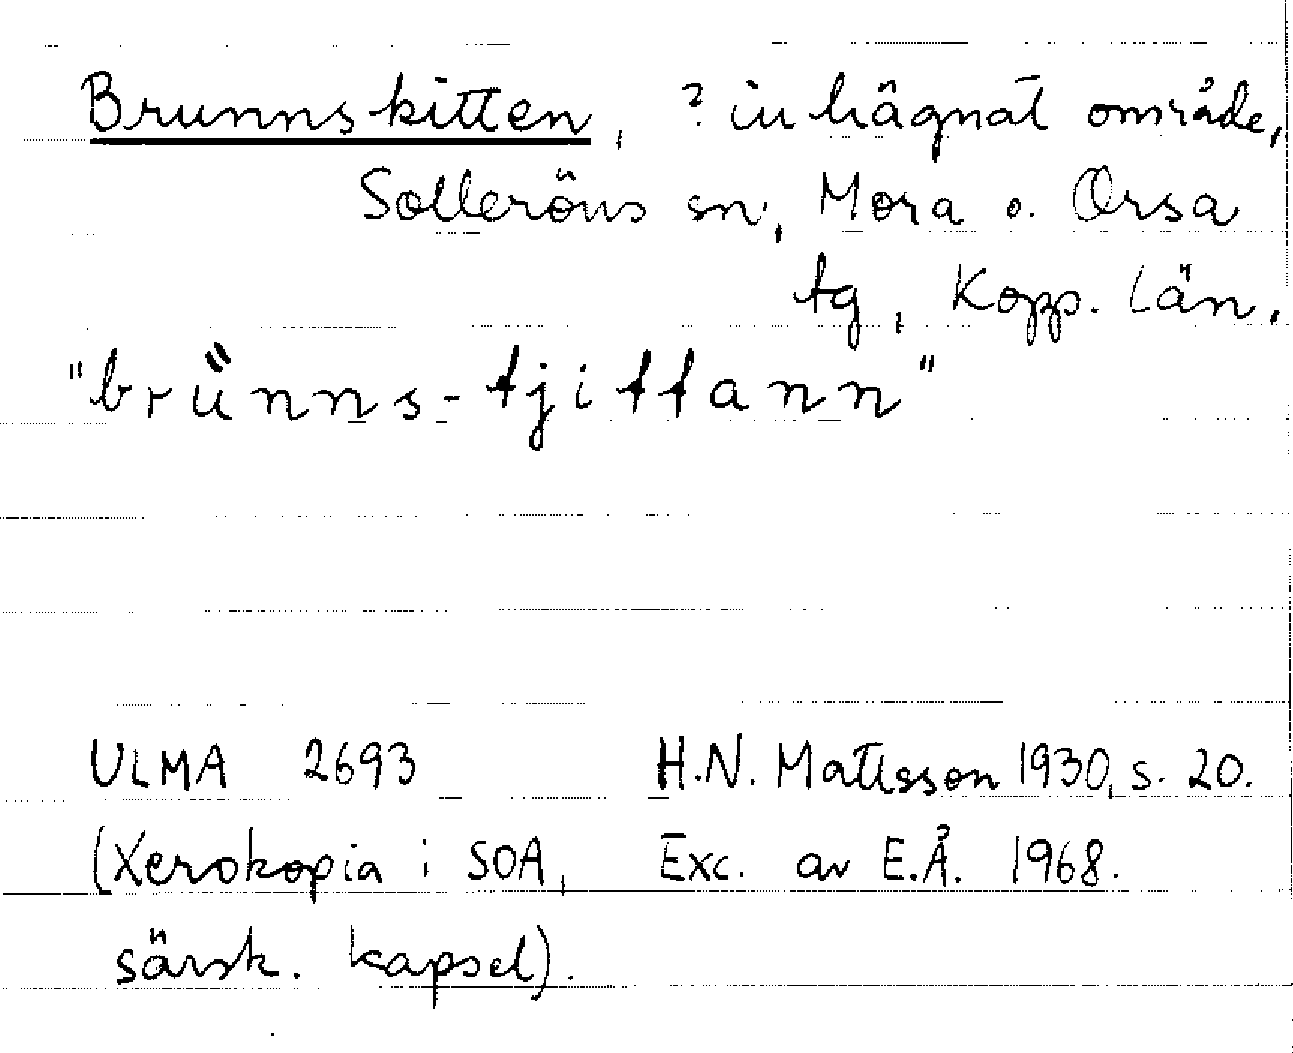 Brunnskitten, ? inhägnat område,
Solleröns sn, Mora o. Orsa
tg, Kopp. län.
"brünns-tjittann"
ULMA 2693 H.N. Mattsson 1930, s. 20.
(Xerokopia i SOA, Exc. av E.Å. 1968.
särsk. kapsel).